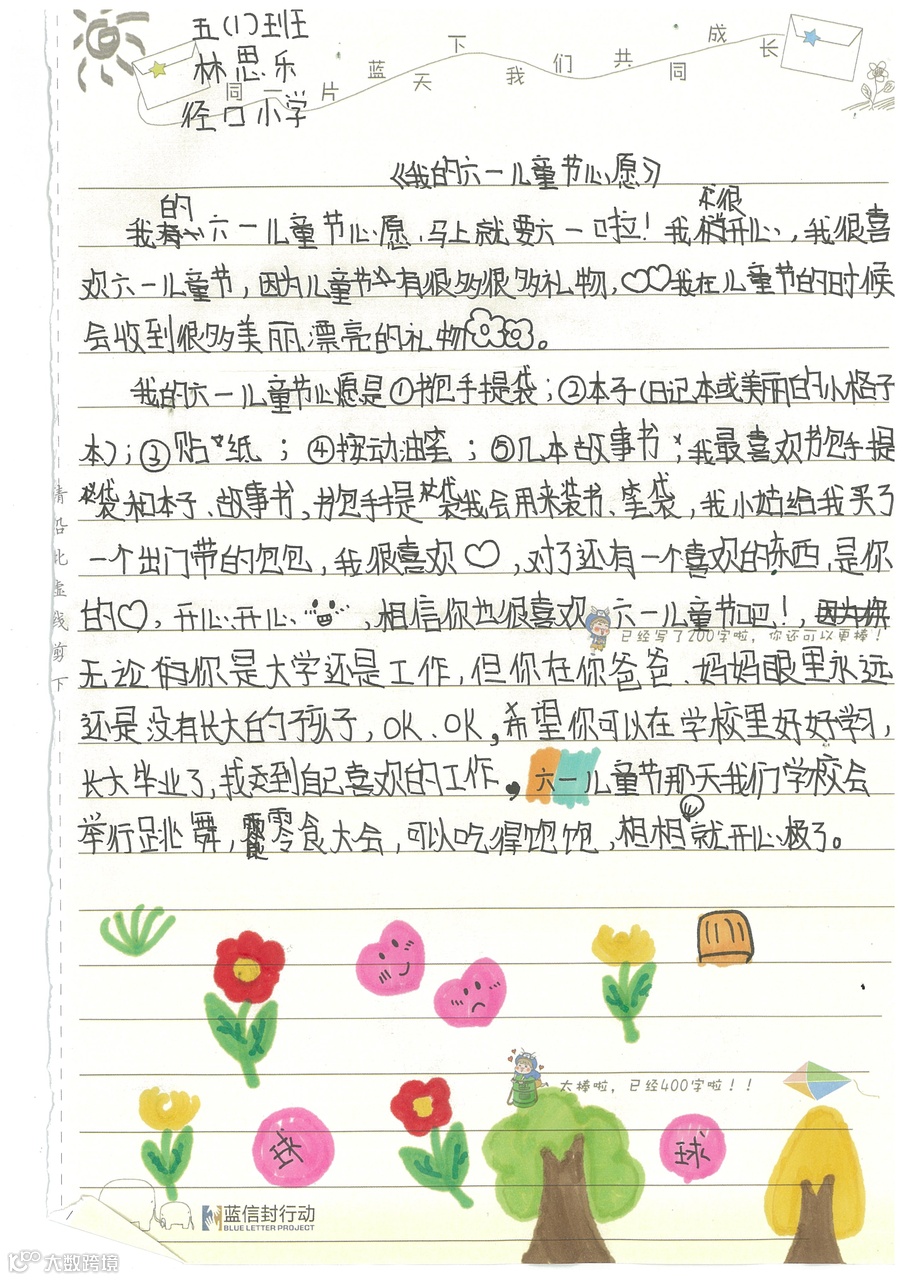 五(1)班
林思乐
径口小学
同一片蓝天下 我们共同成长
《我的六一儿童节心愿》
我的六一儿童节心愿,马上就要六一啦!我很开心,我很喜
欢六一儿童节,因为儿童节有很多很多礼物,♡♡我在儿童节的时候
会收到很多美丽漂亮的礼物。
我的六一儿童节心愿是①书包手提袋;②本子(日记本或美丽的小格子
本);③贴纸;④按动油笔;⑤几本故事书;我最喜欢书包手提
袋和本子、故事书,书包手提袋我会用来装书、笔袋,我小姑给我买了
一个出门带的包包,我很喜欢♡,对了还有一个喜欢的东西,是你
的♡,开心开心,相信你也很喜欢六一儿童节吧!,
已经写了200字啦,你还可以更棒!
无论你是大学还是工作,但你在你爸爸、妈妈眼里永远
还是没有长大的孩子,OK、OK,希望你可以在学校里好好学习,
长大毕业了,找到自己喜欢的工作,六一儿童节那天我们学校会
举行跳舞,零食大会,可以吃得饱饱,想想就开心极了。
请沿此虚线剪下
太棒啦,已经400字啦!!
球
蓝信封行动
BLUE LETTER PROJECT
大数跨境